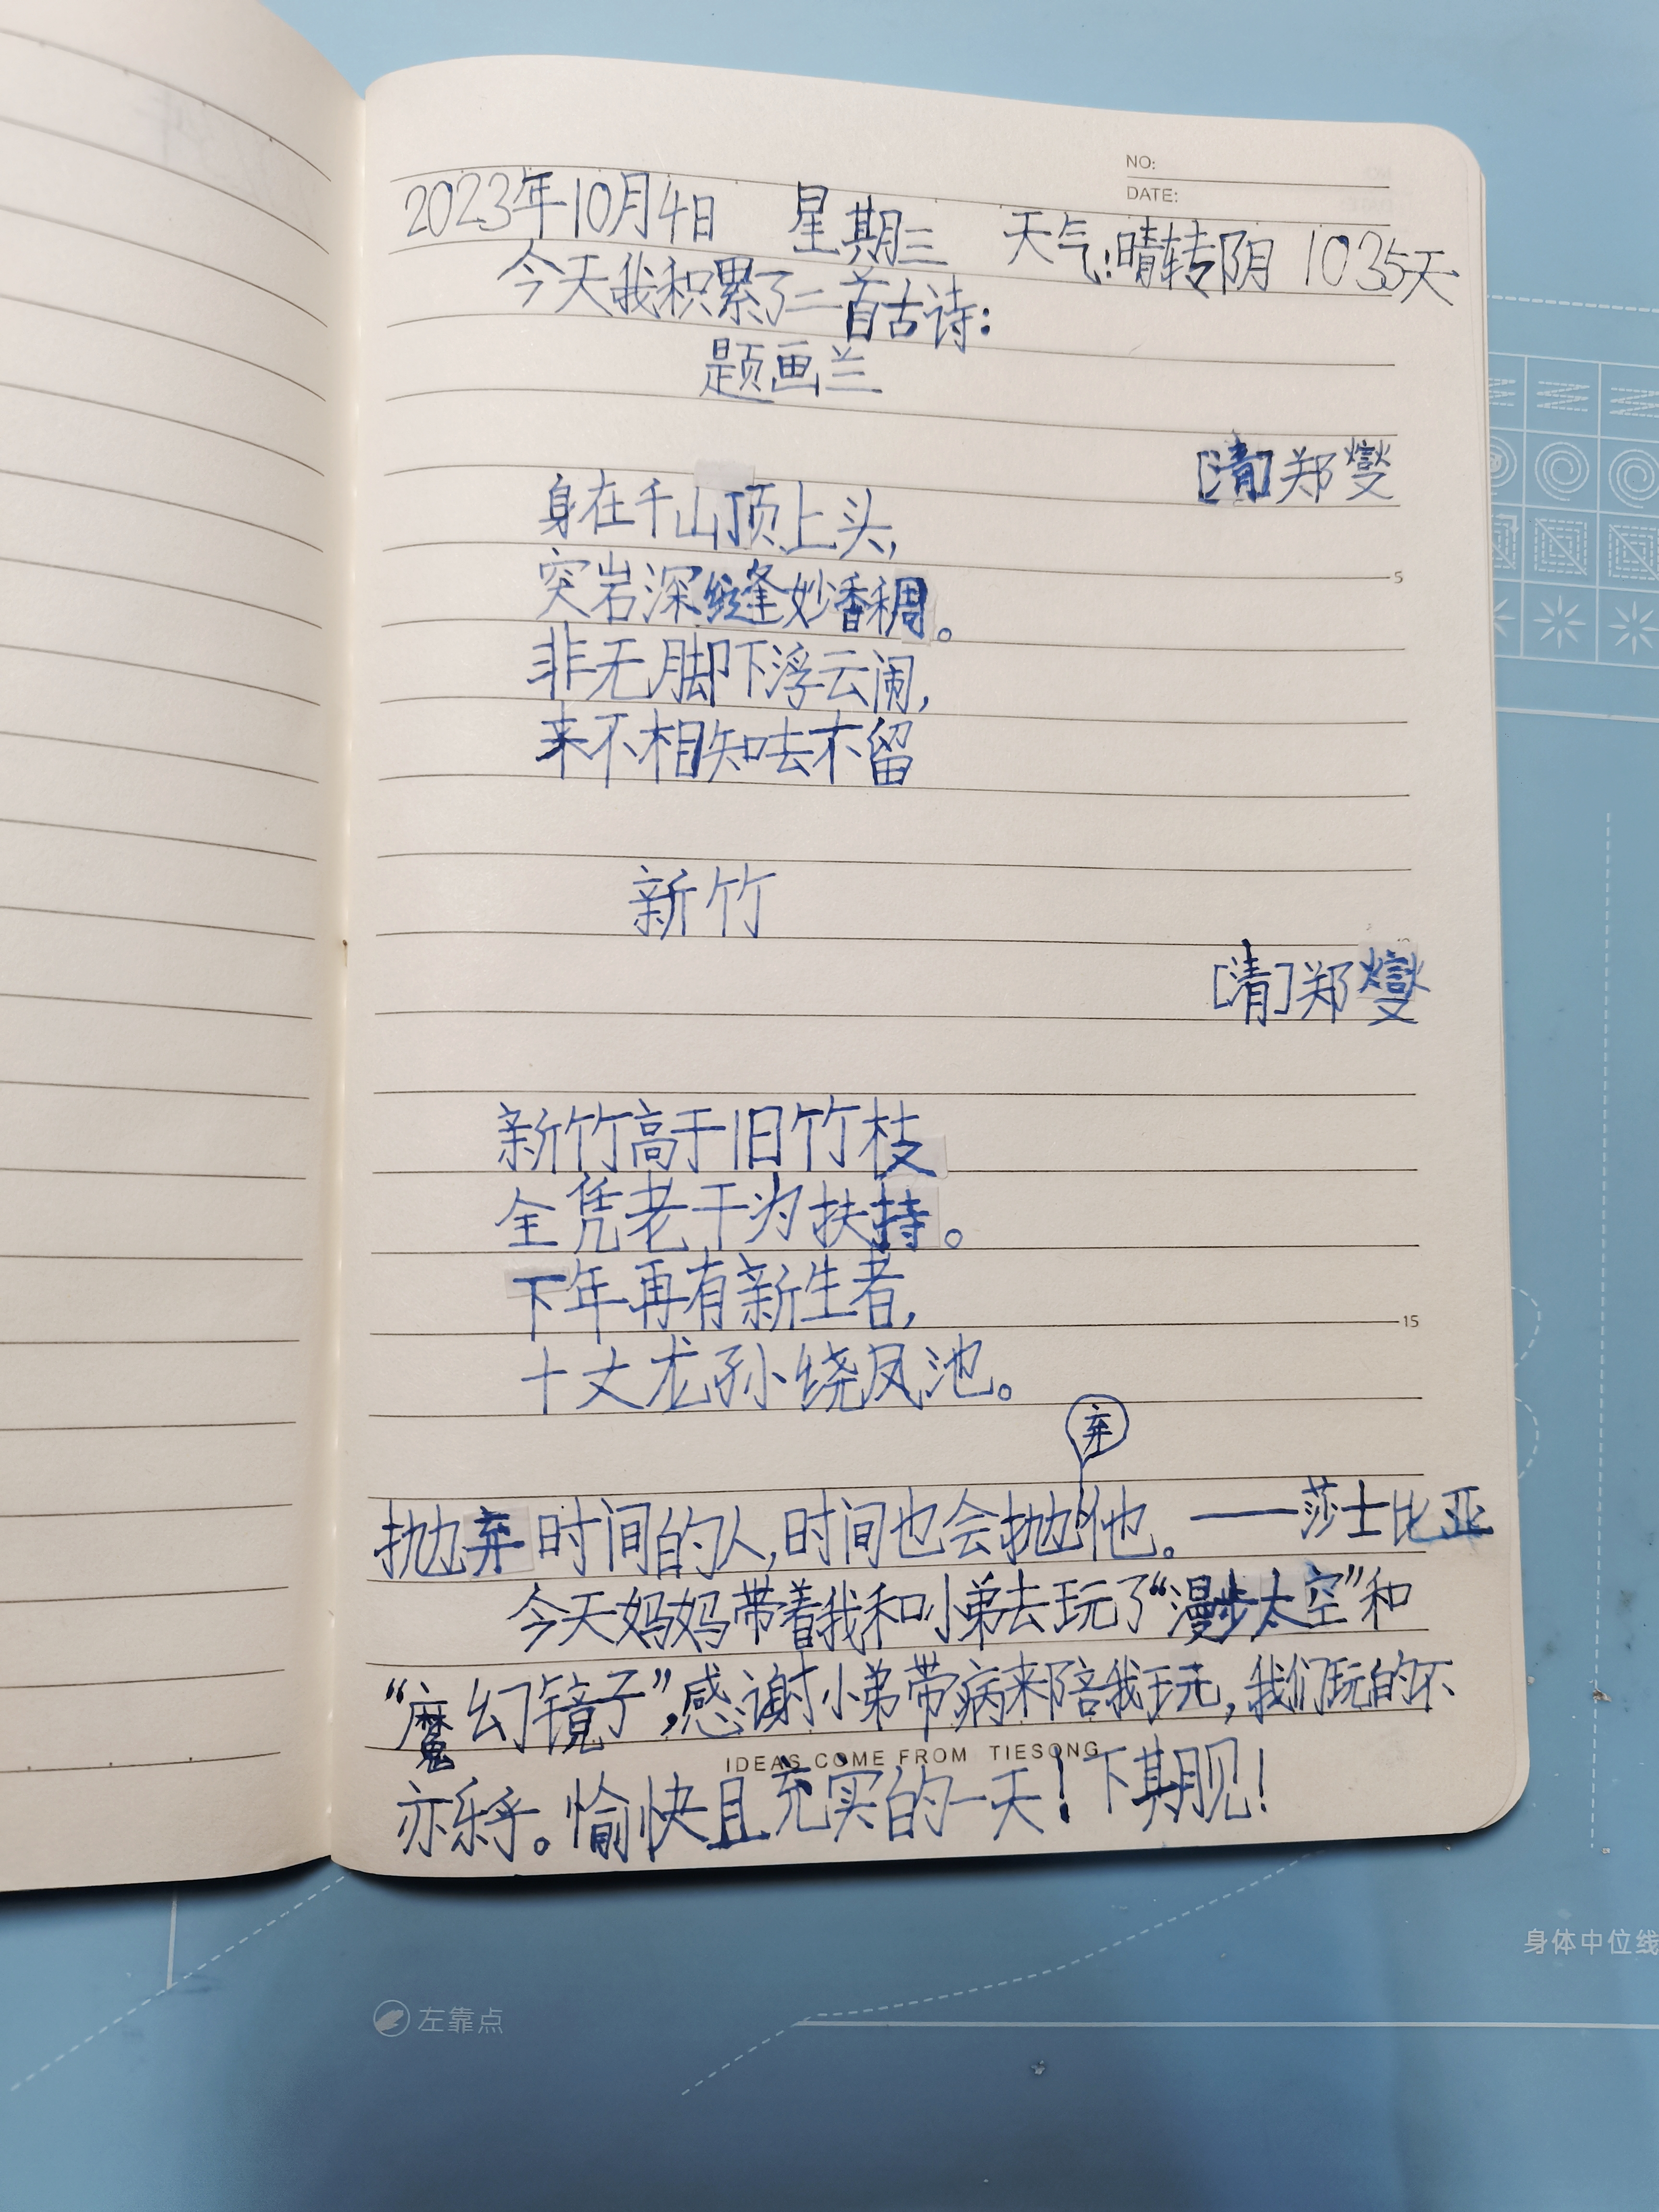 NO:
DATE:
2023年10月4日 星期三 天气:晴转阴 1035天
今天我积累了二首古诗:
题画兰
[清]郑燮
身在千山顶上头,
突岩深缝妙香稠。
5
非无脚下浮云闹,
来不相知去不留
新竹
[清]郑燮
新竹高于旧竹枝
全凭老干为扶持。
下年再有新生者,
15
十丈龙孙绕凤池。
弃
抛弃时间的人,时间也会抛他。——莎士比亚
今天妈妈带着我和小弟去玩了“漫步太空”和
“魔幻镜子”,感谢小弟带病来陪我玩,我们玩的不
IDEAS COME FROM TIESONG
亦乐乎。愉快且充实的一天!下期见!
身体中位线
左靠点